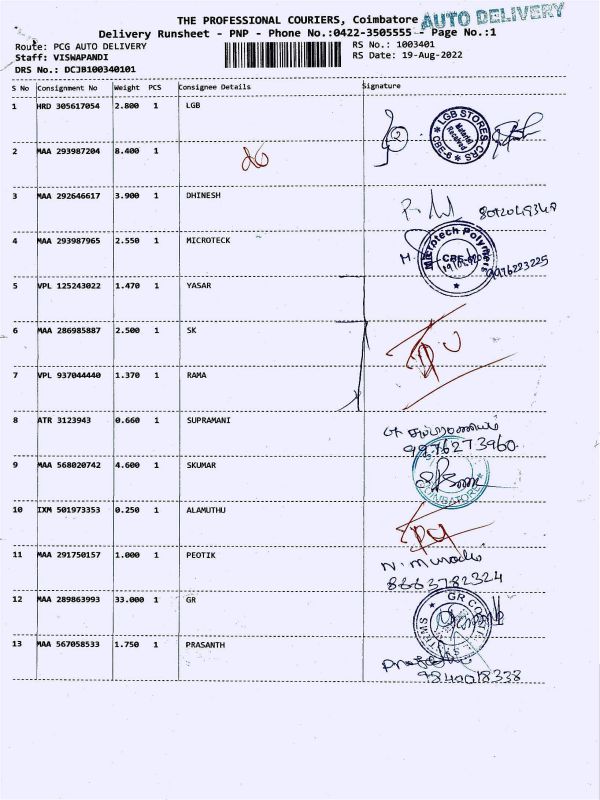 THE PROFESSIONAL COURIERS, Coimbatore
AUTO DELIVERY
Delivery Runsheet - PNP - Phone No.:0422-3505555 - Page No.:1
Route: PCG AUTO DELIVERY RS No.: 1003401
Staff: VISWAPANDI RS Date: 19-Aug-2022
DRS No.: DCJB100340101
S No Consignment No Weight PCS Consignee Details Signature
1 HRD 305617054 2.800 1 LGB
LGB STORES-CRS Material Received CBE-6
2 MAA 293987204 8.400 1
3 MAA 292646617 3.900 1 DHINESH
4 MAA 293987965 2.550 1 MICROTECK
Microtech Polymers
9976223225
5 VPL 125243022 1.470 1 YASAR
6 MAA 286985887 2.500 1 SK
7 VPL 937044440 1.370 1 RAMA
8 ATR 3123943 0.660 1 SUPRAMANI
9976273960
9 MAA 568020742 4.600 1 SKUMAR
COIMBATORE
10 IXM 501973353 0.250 1 ALAMUTHU
11 MAA 291750157 1.000 1 PEOTIK
8883782324
12 MAA 289863993 33.000 1 GR
13 MAA 567058533 1.750 1 PRASANTH
9840018338